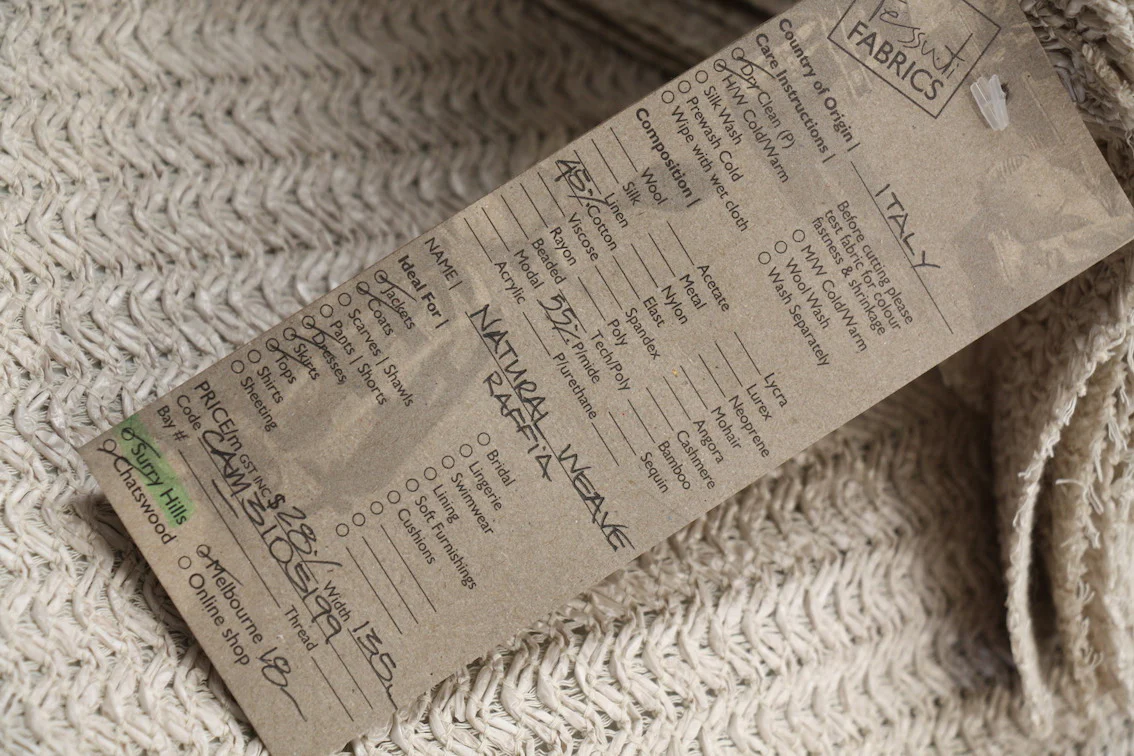 Tessuti
FABRICS
Country of Origin | ITALY
Care Instructions |
Dry Clean (P)
H/W Cold/Warm
Silk Wash
Prewash Cold
Wipe with wet cloth
Before cutting please
test fabric for colour
fastness & shrinkage
M/W Cold/Warm
Wool Wash
Wash Separately
Composition |
Wool
Silk
Linen
45% Cotton
Viscose
Rayon
Beaded
Modal
Acrylic
Acetate
Metal
Nylon
Elast
Spandex
Poly
Tech/Poly
55% P/mide
Plurethane
Lycra
Lurex
Neoprene
Mohair
Angora
Cashmere
Bamboo
Sequin
NAME | NATURAL WEAVE
RAFFIA
Ideal For |
Jackets
Coats
Scarves | Shawls
Pants | Shorts
Dresses
Skirts
Tops
Shirts
Sheeting
Bridal
Lingerie
Swimwear
Lining
Soft Furnishings
Cushions
PRICE/m GST INC $28 Width 135
Code CAM3105199
Bay # Thread
Surry Hills
Chatswood
Melbourne 18
Online shop